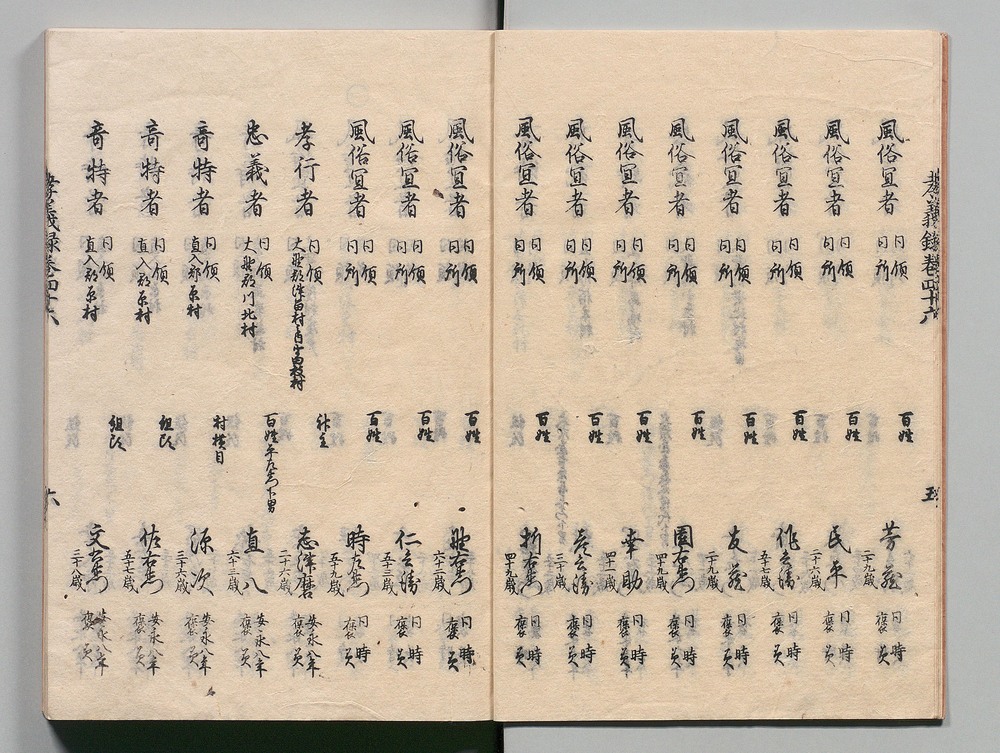 孝義録巻四十六 五
風俗宜者 同領同所 百姓 芳蔵 二十九歳 同時褒美
風俗宜者 同領同所 百姓 民平 二十六歳 同時褒美
風俗宜者 同領同所 百姓 作兵衛 五十七歳 同時褒美
風俗宜者 同領同所 百姓 友蔵 二十九歳 同時褒美
風俗宜者 同領同所 百姓 園右衛門 四十九歳 同時褒美
風俗宜者 同領同所 百姓 幸助 四十一歳 同時褒美
風俗宜者 同領同所 百姓 兵衛 三十二歳 同時褒美
風俗宜者 同領同所 百姓 折右衛門 四十九歳 同時褒美
風俗宜者 同領同所 百姓 右衛門 六十二歳 同時褒美
風俗宜者 同領同所 百姓 仁兵衛 五十三歳 同時褒美
風俗宜者 同領同所 百姓 時右衛門 五十九歳 同時褒美
孝行者 同領大野郡津留村之内平田枝村 社主 志津磨 二十六歳 安永八年褒美
忠義者 同領大野郡川北村 百姓平左衛門下男 直八 六十二歳 安永八年褒美
奇特者 同領直入郡原村 村横目 源次 三十六歳 安永八年褒美
奇特者 同領直入郡原村 組頭 佐右衛門 五十七歳 安永八年褒美
奇特者 同領直入郡原村 組頭 文右衛門 三十八歳 安永八年褒美
孝義録巻四十六 六